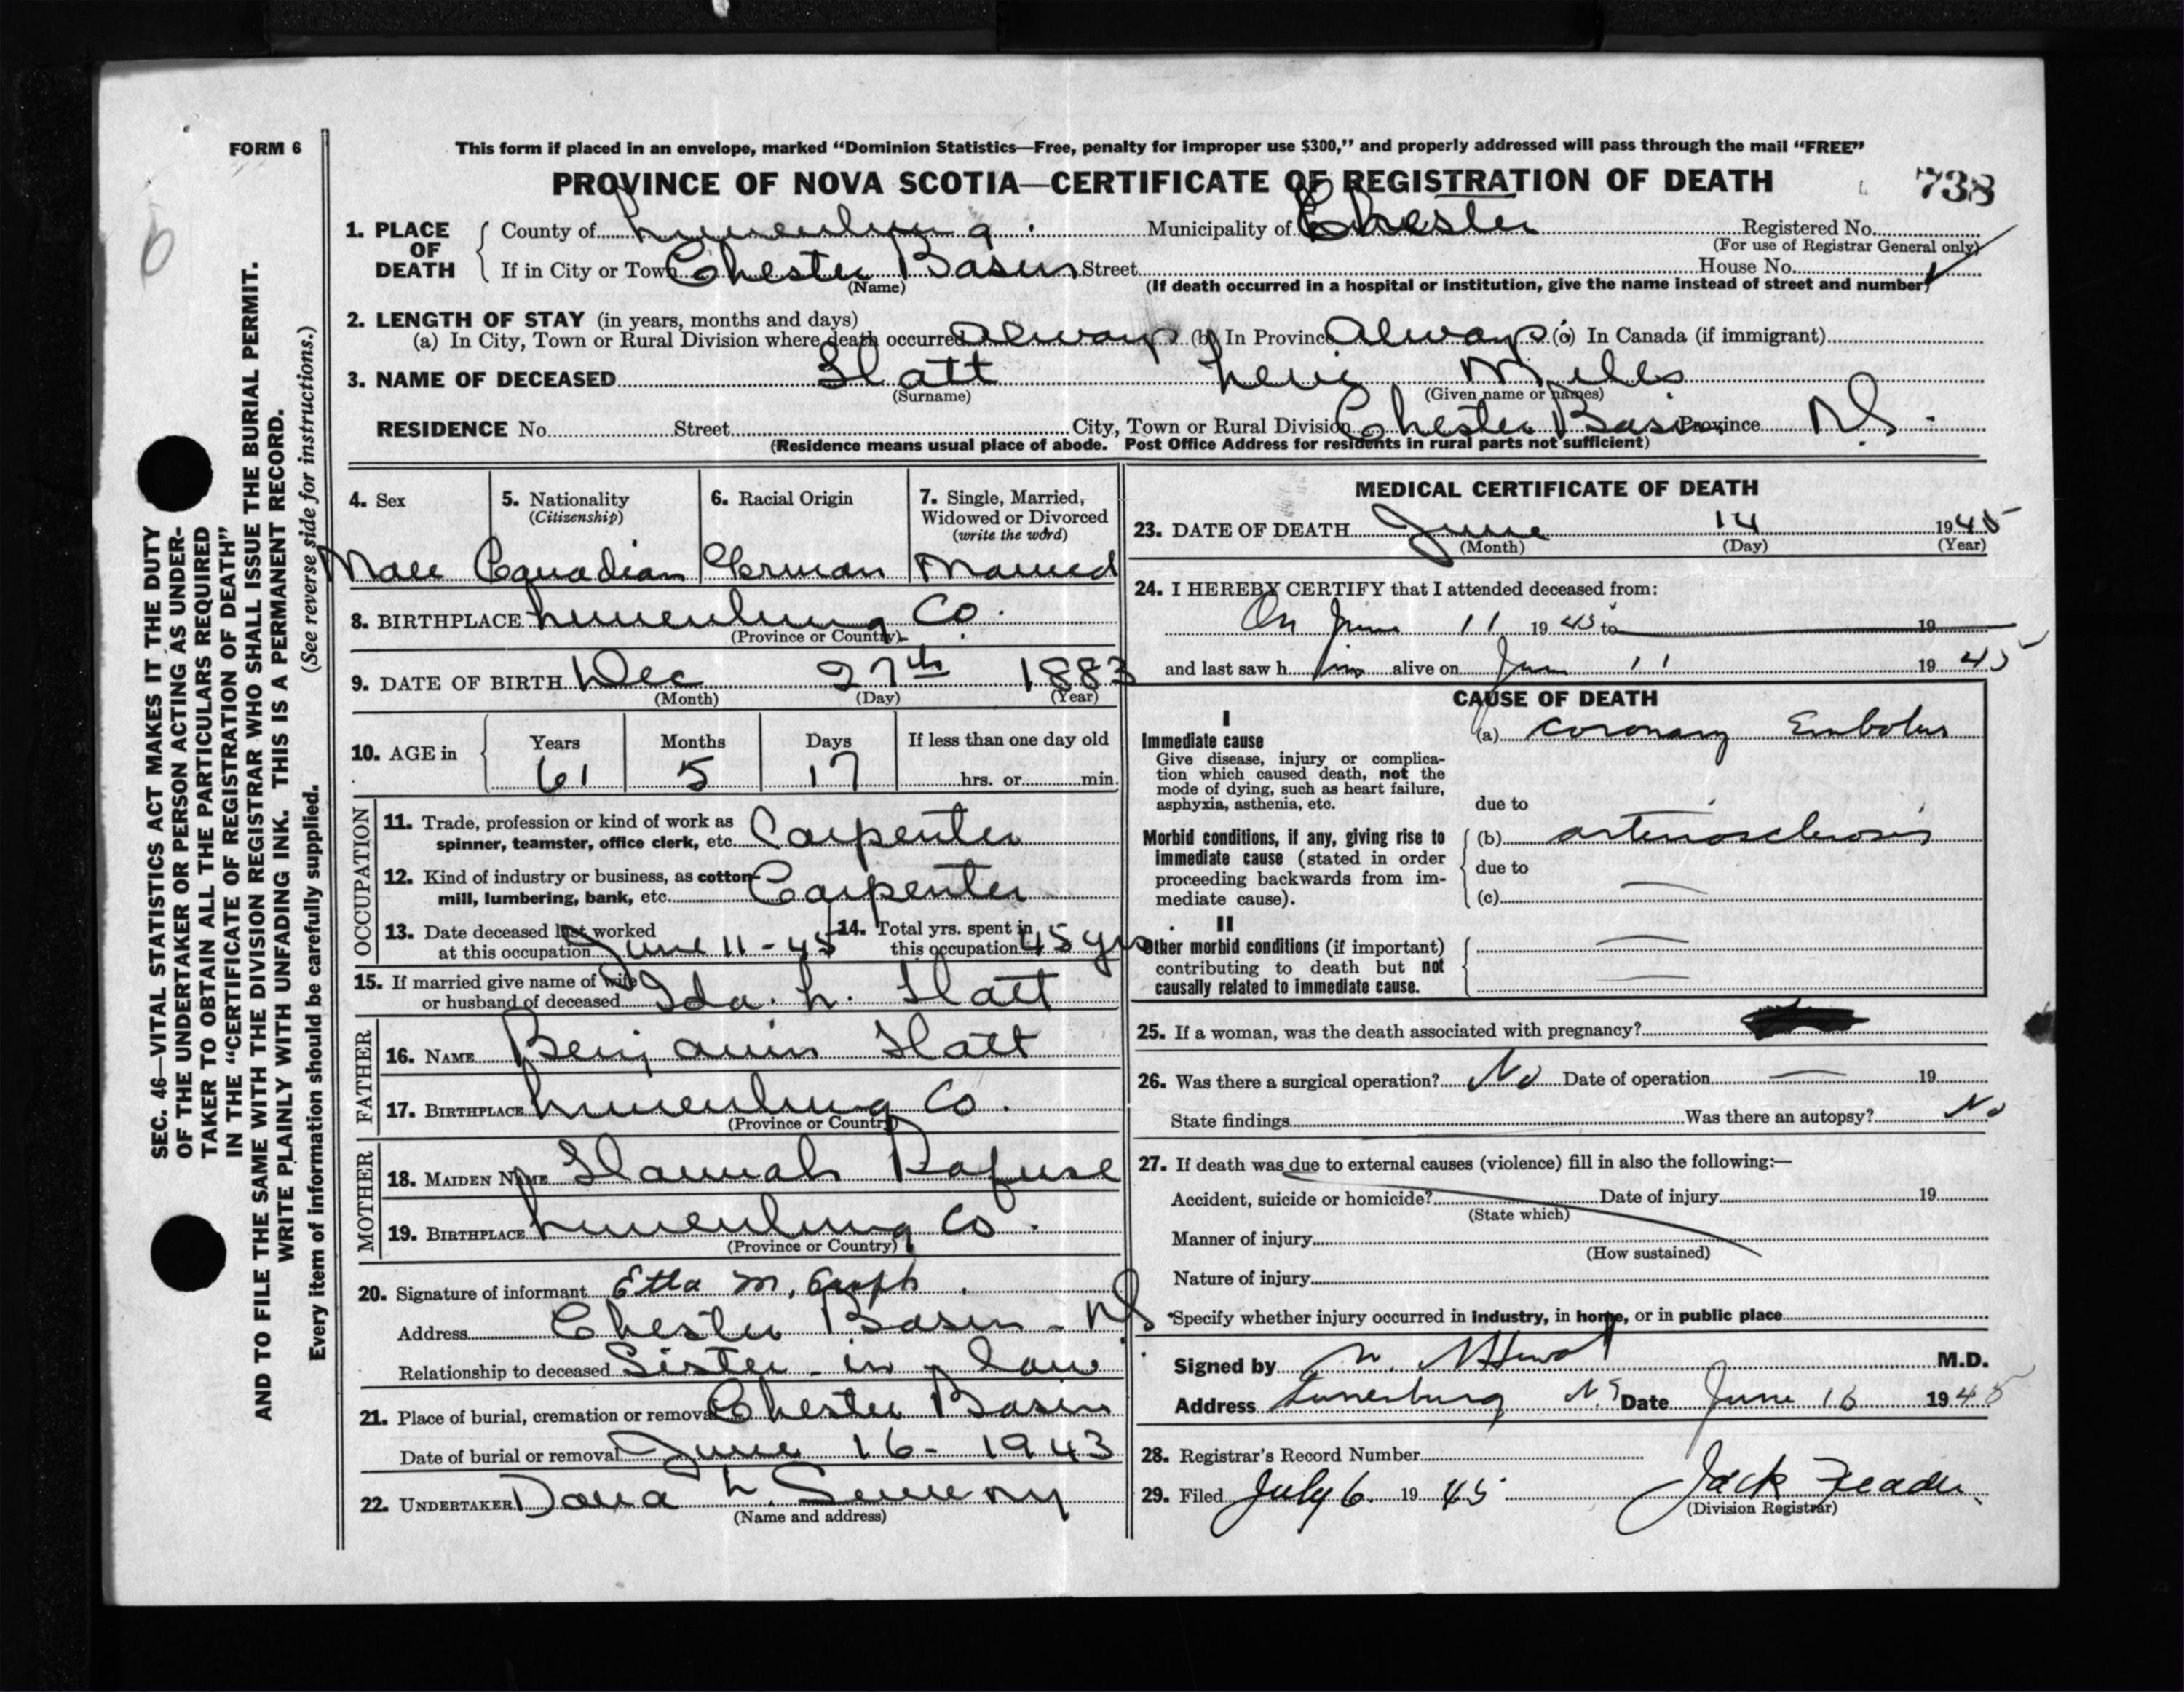 FORM 6
This form if placed in an envelope, marked “Dominion Statistics—Free, penalty for improper use $300,” and properly addressed will pass through the mail “FREE”
PROVINCE OF NOVA SCOTIA—CERTIFICATE OF REGISTRATION OF DEATH
738
1. PLACE OF DEATH
County of Lunenburg. Municipality of Chester Registered No.
(For use of Registrar General only)
If in City or Town Chester Basin Street House No.
(Name) (If death occurred in a hospital or institution, give the name instead of street and number)
2. LENGTH OF STAY (in years, months and days)
(a) In City, Town or Rural Division where death occurred Always (b) In Province Always (c) In Canada (if immigrant)
3. NAME OF DECEASED Hatt Levi Miles
(Surname) (Given name or names)
RESIDENCE No. Street City, Town or Rural Division Chester Basin Province NS -
(Residence means usual place of abode. Post Office Address for residents in rural parts not sufficient)
4. Sex
Male
5. Nationality
(Citizenship)
Canadian
6. Racial Origin
German
7. Single, Married,
Widowed or Divorced
(write the word)
Married
8. BIRTHPLACE Lunenburg Co.
(Province or Country)
9. DATE OF BIRTH Dec 27th 1883
(Month) (Day) (Year)
10. AGE in
Years Months Days If less than one day old
61 5 17 hrs. or min.
OCCUPATION
11. Trade, profession or kind of work as
spinner, teamster, office clerk, etc. Carpenter
12. Kind of industry or business, as cotton-
mill, lumbering, bank, etc. Carpenter
13. Date deceased last worked
at this occupation June 11-45
14. Total yrs. spent in
this occupation 45 yrs.
15. If married give name of wife
or husband of deceased Ida. L. Hatt
FATHER
16. NAME Benjamin Hatt
17. BIRTHPLACE Lunenburg Co.
(Province or Country)
MOTHER
18. MAIDEN NAME Hannah Rafuse
19. BIRTHPLACE Lunenburg Co.
(Province or Country)
20. Signature of informant Etta M.
Address Chester Basin - NS
Relationship to deceased Sister-in-law
21. Place of burial, cremation or removal Chester Basin
Date of burial or removal June 16- 1943
22. UNDERTAKER L.
(Name and address)
MEDICAL CERTIFICATE OF DEATH
23. DATE OF DEATH June 14 1945
(Month) (Day) (Year)
24. I HEREBY CERTIFY that I attended deceased from:
On June 11 1945 to 19
and last saw h im alive on June 11 1945
CAUSE OF DEATH
I
Immediate cause
Give disease, injury or complica-
tion which caused death, not the
mode of dying, such as heart failure,
asphyxia, asthenia, etc.
(a) coronary Embolus
due to
Morbid conditions, if any, giving rise to
immediate cause (stated in order
proceeding backwards from im-
mediate cause).
(b) arteriosclerosis
due to
(c) —
II
Other morbid conditions (if important)
contributing to death but not
causally related to immediate cause.
25. If a woman, was the death associated with pregnancy?
26. Was there a surgical operation? No Date of operation — 19
State findings Was there an autopsy? No
27. If death was due to external causes (violence) fill in also the following:—
Accident, suicide or homicide? Date of injury 19
(State which)
Manner of injury
(How sustained)
Nature of injury
*Specify whether injury occurred in industry, in home, or in public place
Signed by M.D.
Address Lunenburg NS Date June 16 1945
28. Registrar's Record Number
29. Filed July 6 1945 Jack
(Division Registrar)
SEC. 46—VITAL STATISTICS ACT MAKES IT THE DUTY
OF THE UNDERTAKER OR PERSON ACTING AS UNDER-
TAKER TO OBTAIN ALL THE PARTICULARS REQUIRED
IN THE “CERTIFICATE OF REGISTRATION OF DEATH”
AND TO FILE THE SAME WITH THE DIVISION REGISTRAR WHO SHALL ISSUE THE BURIAL PERMIT.
WRITE PLAINLY WITH UNFADING INK. THIS IS A PERMANENT RECORD.
Every item of information should be carefully supplied. (See reverse side for instructions.)